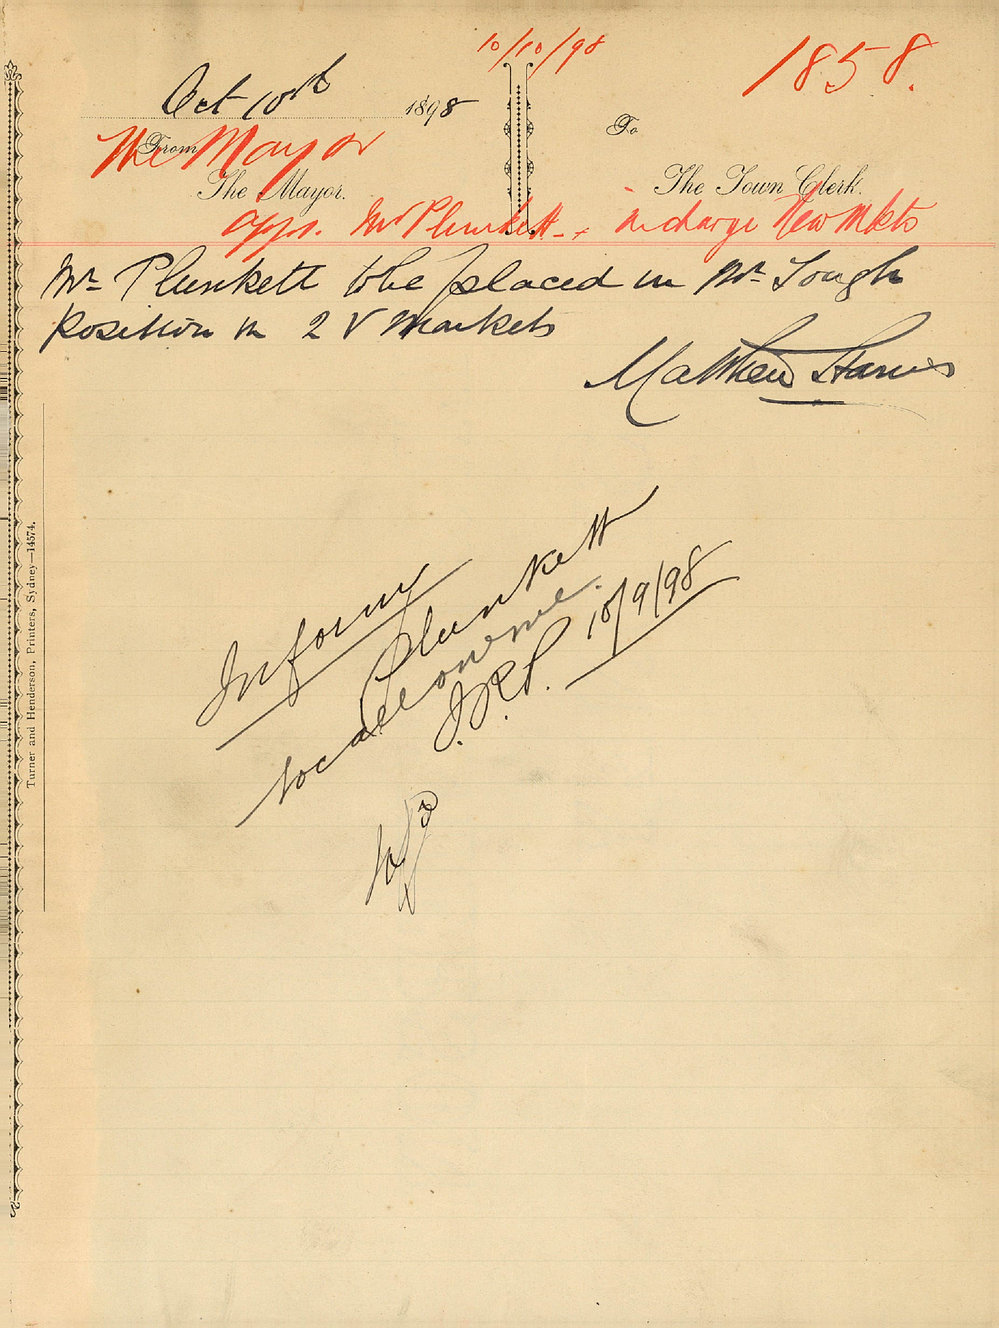 10/10/98
1858.
Oct 10th 1898
From
To
The Mayor
The Mayor.
The Town Clerk.
Mr Plunkett in charge New Mkts
Mr Plunkett to be placed in Mr Tough
Position in 2 V Markets
Matthew Harris
Inform
Plunkett
to call on me.
10/9/98
Turner and Henderson, Printers, Sydney—14574.